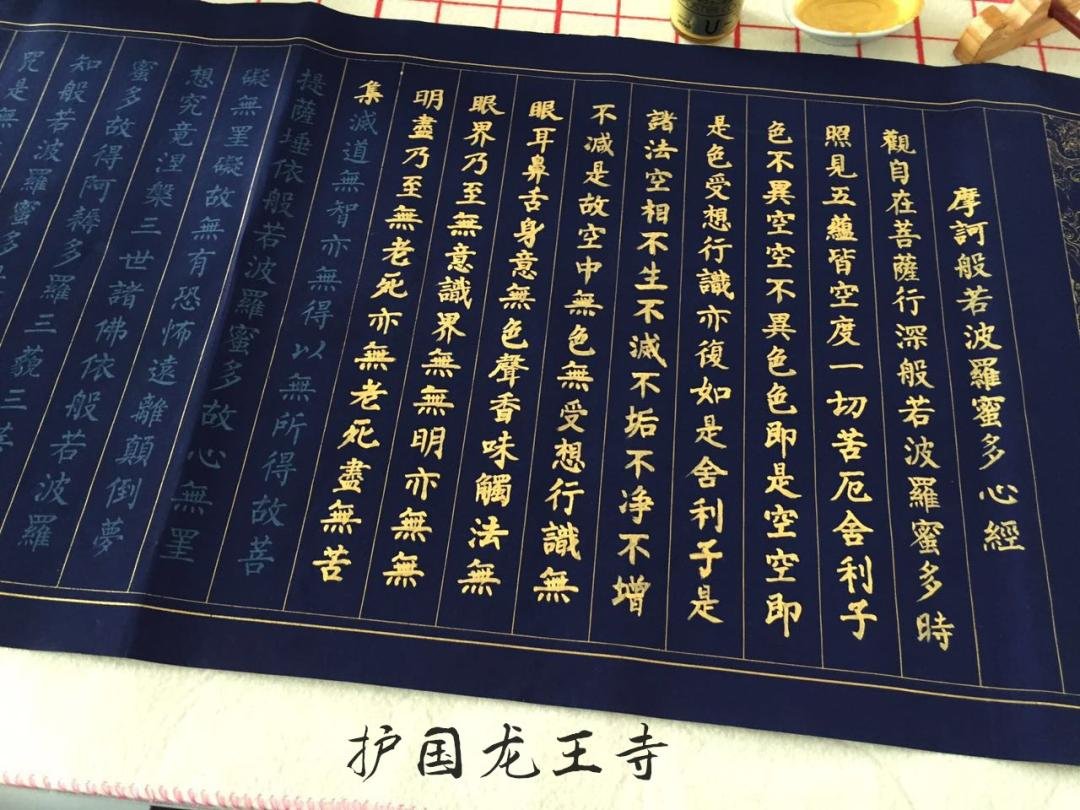 摩訶般若波羅蜜多心經
觀自在菩薩行深般若波羅蜜多時
照見五蘊皆空度一切苦厄舍利子
色不異空空不異色色即是空空即
是色受想行識亦復如是舍利子是
諸法空相不生不滅不垢不净不增
不减是故空中無色無受想行識無
眼耳鼻舌身意無色聲香味觸法無
眼界乃至無意識界無無明亦無無
明盡乃至無老死亦無老死盡無苦
集滅道無智亦無得以無所得故菩
提薩埵依般若波羅蜜多故心無罣
礙無罣礙故無有恐怖遠離顛倒夢
想究竟涅槃三世諸佛依般若波羅
蜜多故得阿耨多羅三藐三菩
知般若波羅蜜多
咒是無
U
护国龙王寺